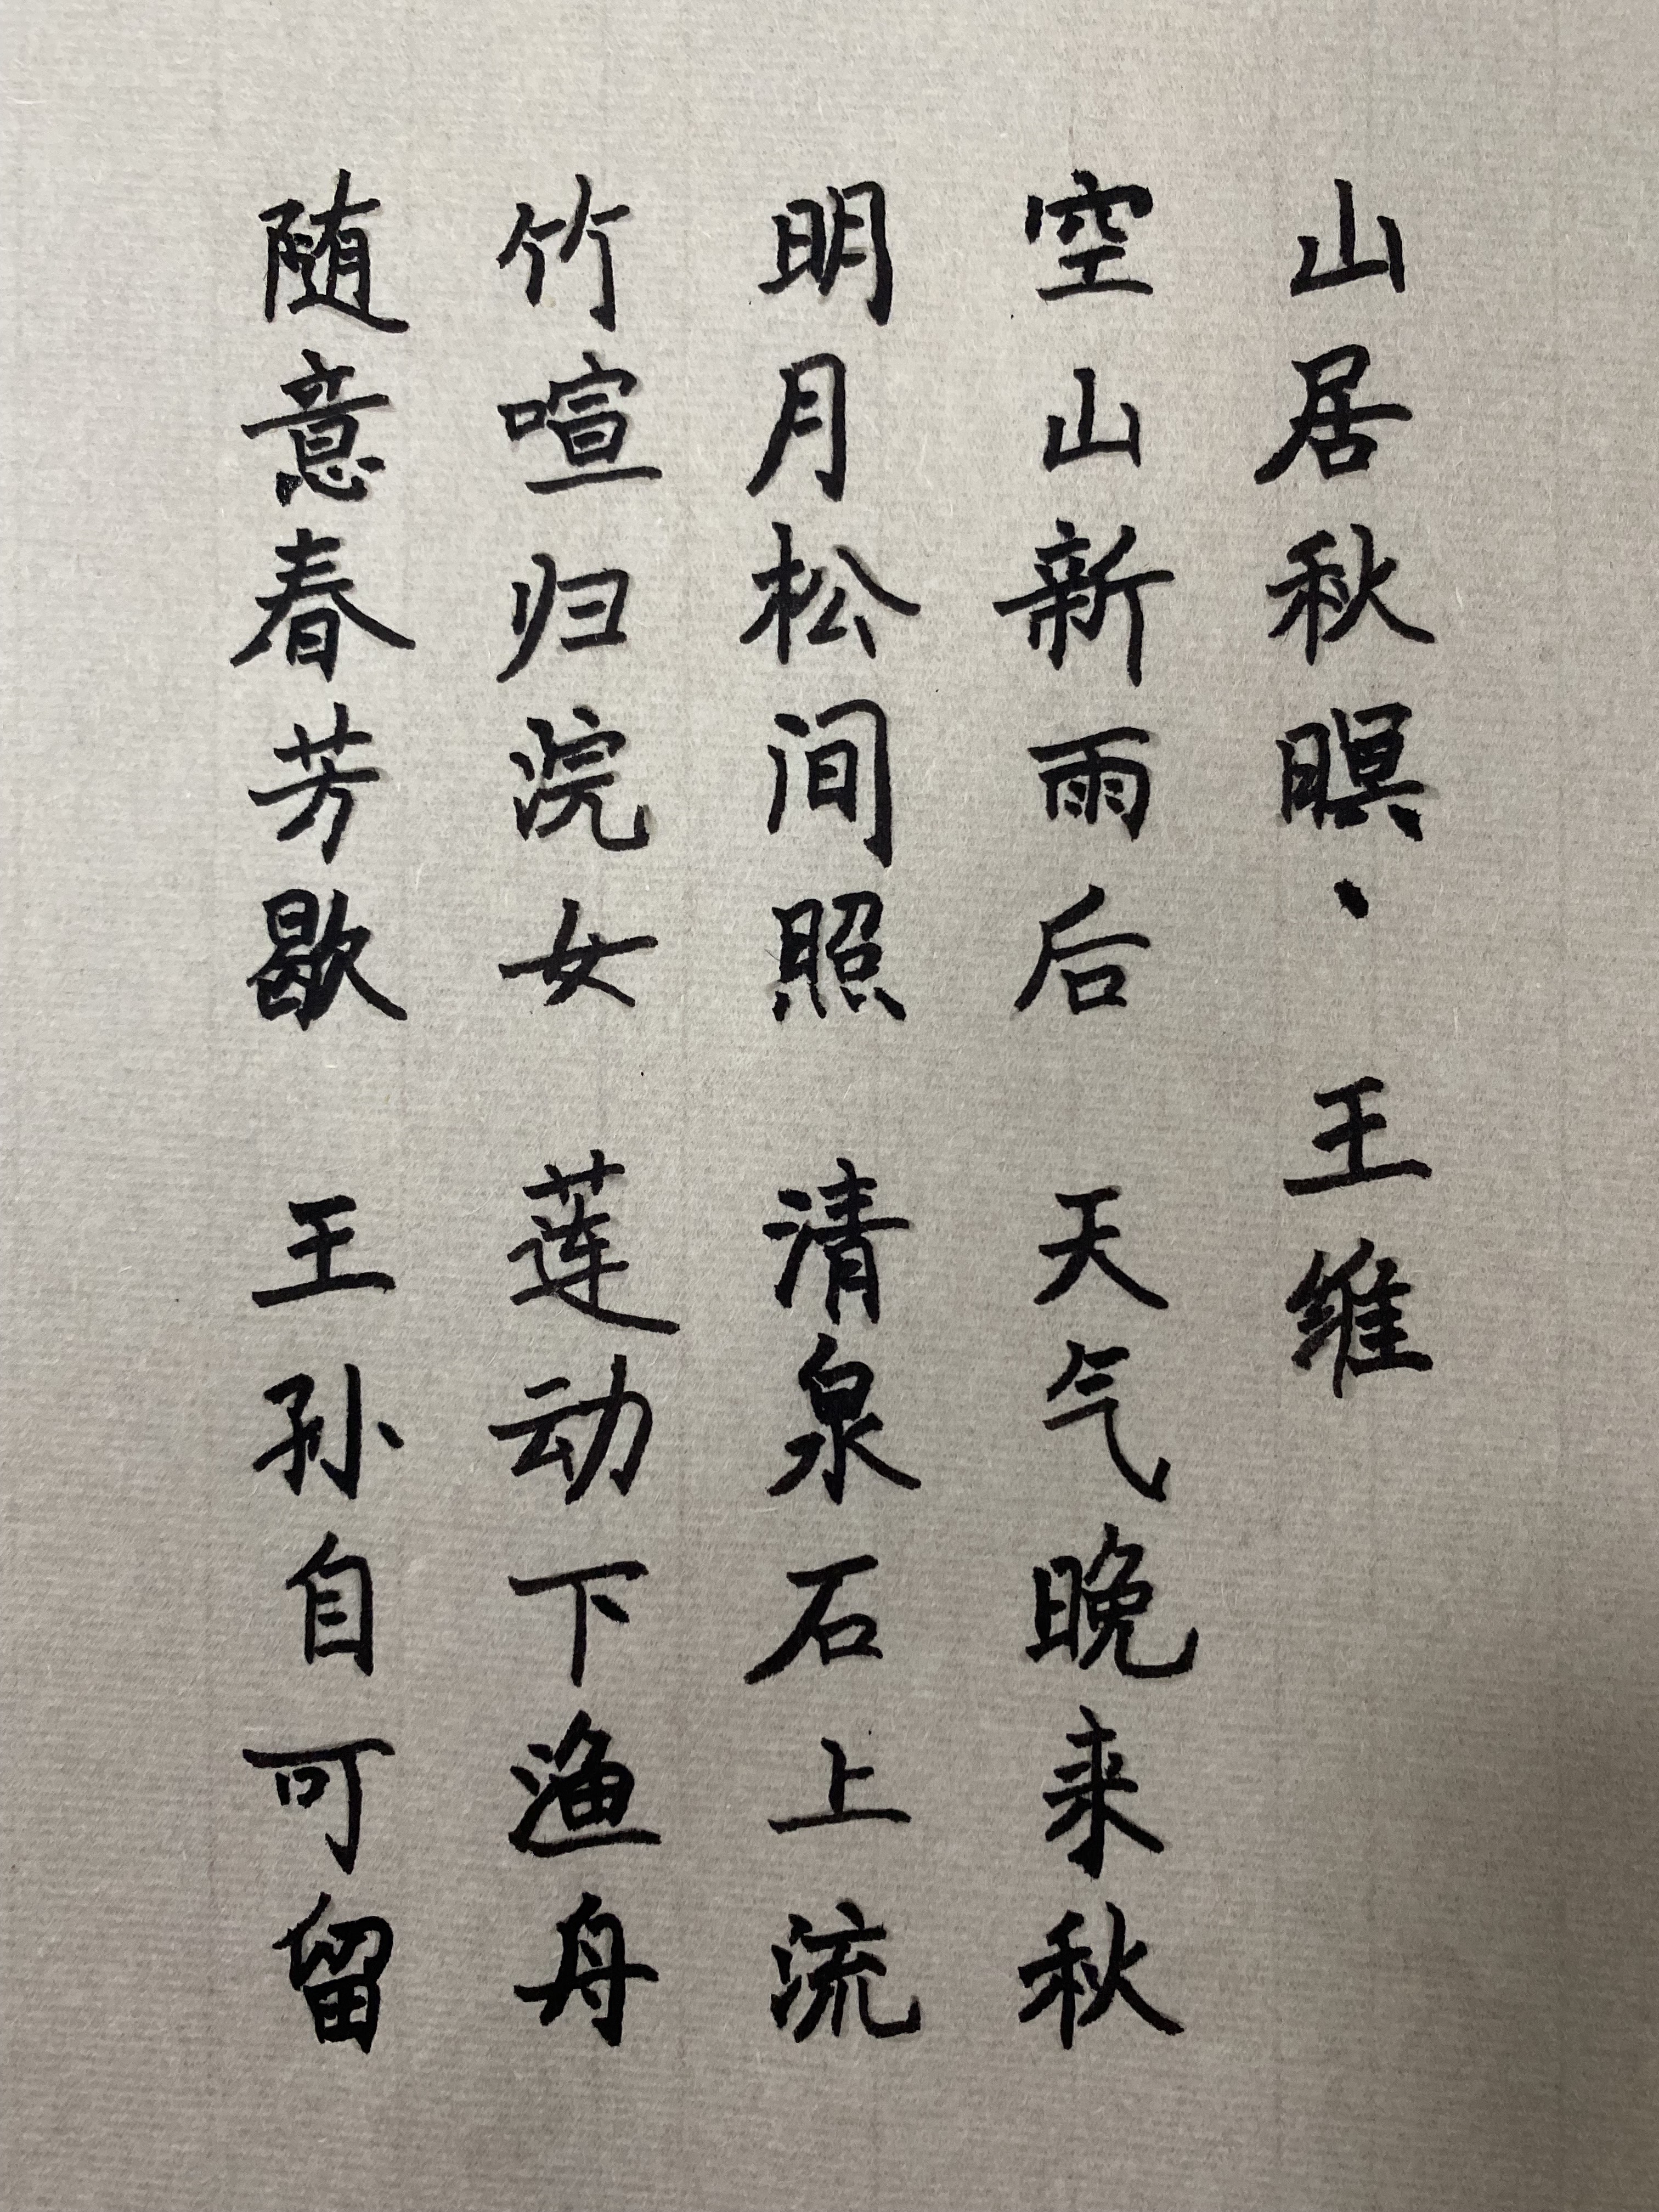 山居秋暝、 王维
空山新雨后 天气晚来秋
明月松间照 清泉石上流
竹喧归浣女 莲动下渔舟
随意春芳歇 王孙自可留